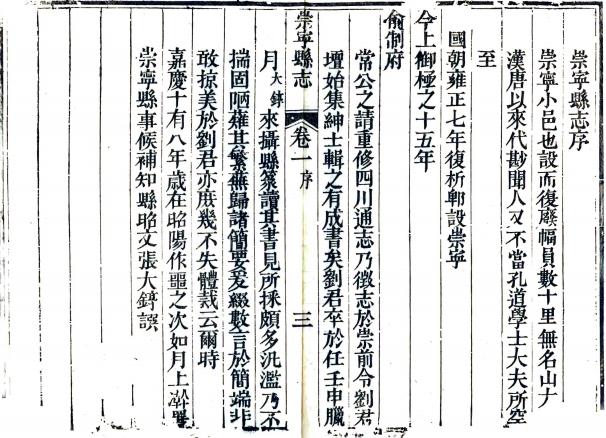 崇寧縣志序
崇寧小邑也設而復廢幅員數十里無名山大
漢唐以來代尠聞人又不當孔道學士大夫所罕
至
國朝雍正七年復析郫設崇寧
今上御極之十五年
俞制府
常公之請重修四川通志乃徵志於崇前令劉君
壇始集紳士輯之有成書矣劉君卒於任壬申臘
崇寧縣志 卷一 序 三
月大鋍來攝縣篆讀其書見所採頗多汎濫乃不
揣固陋雍其繁蕪歸諸簡要爰綴數言於簡端非
敢掠美於劉君亦庶幾不失體裁云爾時
嘉慶十有八年歲在昭陽作噩之次如月上澣署
崇寧縣事候補知縣昭文張大鋍譔